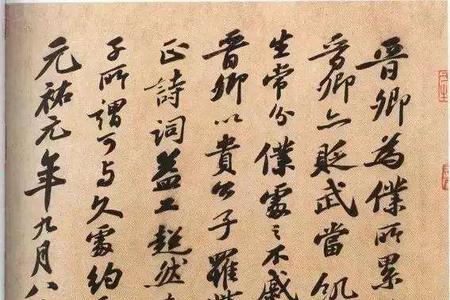 晉卿為僕所累
晉卿亦貶武當飢
生常分僕處之不戚
晉卿以貴公子罹
正詩詞益工超然
子所謂可與久處約
元祐元年九月八